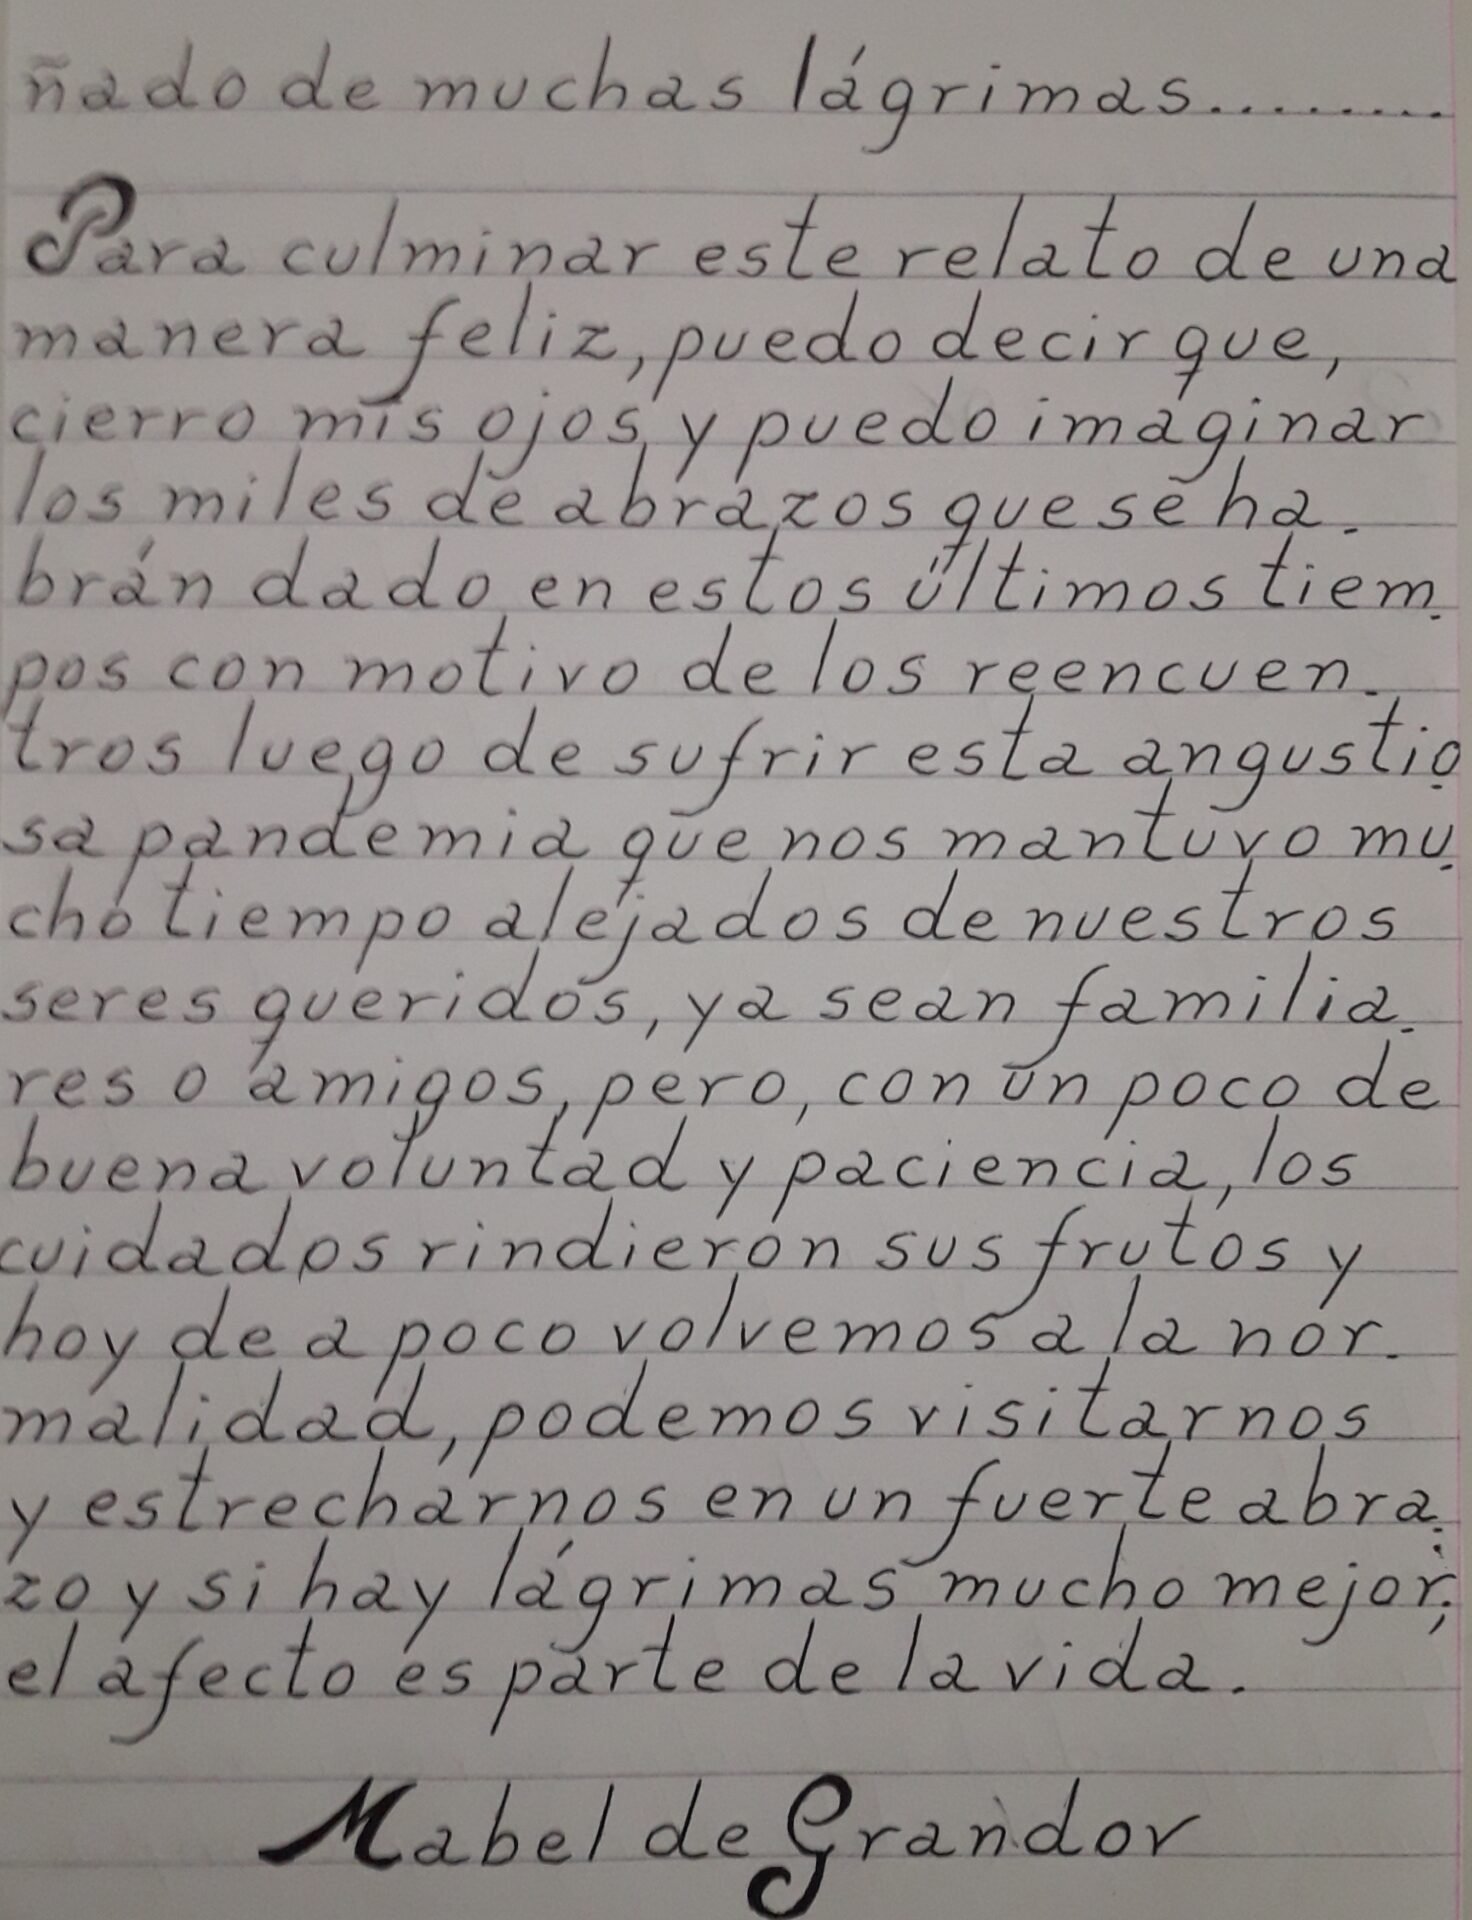 ñado de muchas lágrimas.........
Para culminar este relato de una
manera feliz, puedo decir que,
cierro mis ojos, y puedo imaginar
los miles de abrazos que se ha.
brán dado en estos últimos tiem.
pos con motivo de los reencuen.
tros luego de sufrir esta angustio
sa pandemia que nos mantuvo mu.
cho tiempo alejados de nuestros
seres queridos, ya sean familia.
res o amigos, pero, con un poco de
buena voluntad y paciencia, los
cuidados rindieron sus frutos y
hoy de a poco volvemos a la nor.
malidad, podemos visitarnos
y estrecharnos en un fuerte abra.
zo y si hay lágrimas mucho mejor;
el afecto es parte de la vida.
Mabel de Grandor